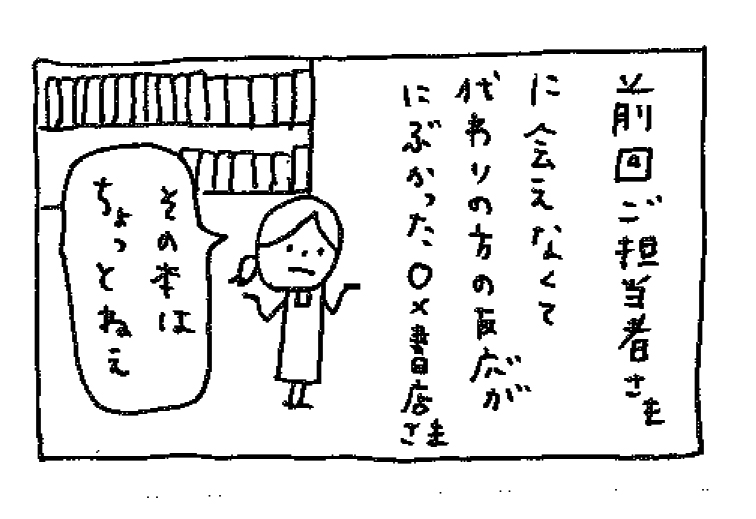 前回ご担当者さま
に会えなくて
代わりの方の反応が
にぶかった、○×書店さま
その本は
ちょっとねぇ